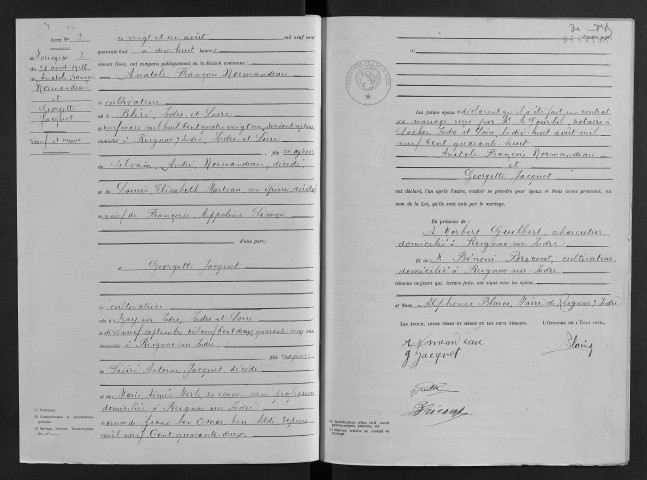 Acte N° 2
Mariage
du 21 août 1948
de Anatole François
Normandeau
et
Georgette
Jacquet
veuf et veuve
Le vingt et un août mil neuf cent
quarante huit à dix huit heures
devant Nous, ont comparu publiquement en la Maison commune :
Anatole François Normandeau
cultivateur
né à Bléré, Indre et Loire
le neuf mars mil huit cent quatre vingt un, soixante sept ans
domicilié à Reignac s/ Indre, Indre et Loire
fils majeur
de Silvain, André, Normandeau, décédé
et de Louise, Elisabeth Marteau, son épouse, décédée
veuf de Françoise Appoline Simon
d'une part ;
et Georgette Jacquet
cultivatrice
née à Azay sur Indre, Indre et Loire
le dix neuf septembre mil neuf cent deux, quarante cinq ans
domiciliée à Reignac sur Indre
fille majeure
de Désiré Antoine Jacquet décédé
et de Marie Aimée Merle, sa veuve sans profession
domiciliée à Reignac sur Indre
veuve de
mil neuf cent quarante deux.
(1) Profession.
d'autre part,
Les futurs époux déclarent qu'il a été fait un contrat
de mariage reçu par Me Courtel, notaire à
Loches Indre et Loire, le dix huit août mil
neuf cent quarante huit
Anatole François Normandeau
et
Georgette Jacquet
ont déclaré, l'un après l'autre, vouloir se prendre pour époux et Nous avons prononcé, au
nom de la Loi, qu'ils sont unis par le mariage.
En présence de
M. Norbert Guilbert, charcutier
domicilié à Reignac sur Indre
Et de M. Bénoni Bricout, cultivateur
domicilié à Reignac sur Indre
témoins majeurs qui, lecture faite, ont signé avec les époux.
et Nous, Alphonse Blaive, Maire de Reignac s/ Indre
Les époux, leurs pères et mères et les deux témoins,
L'Officier de l'État civil,
Normandeau
g Jacquet
Bricout